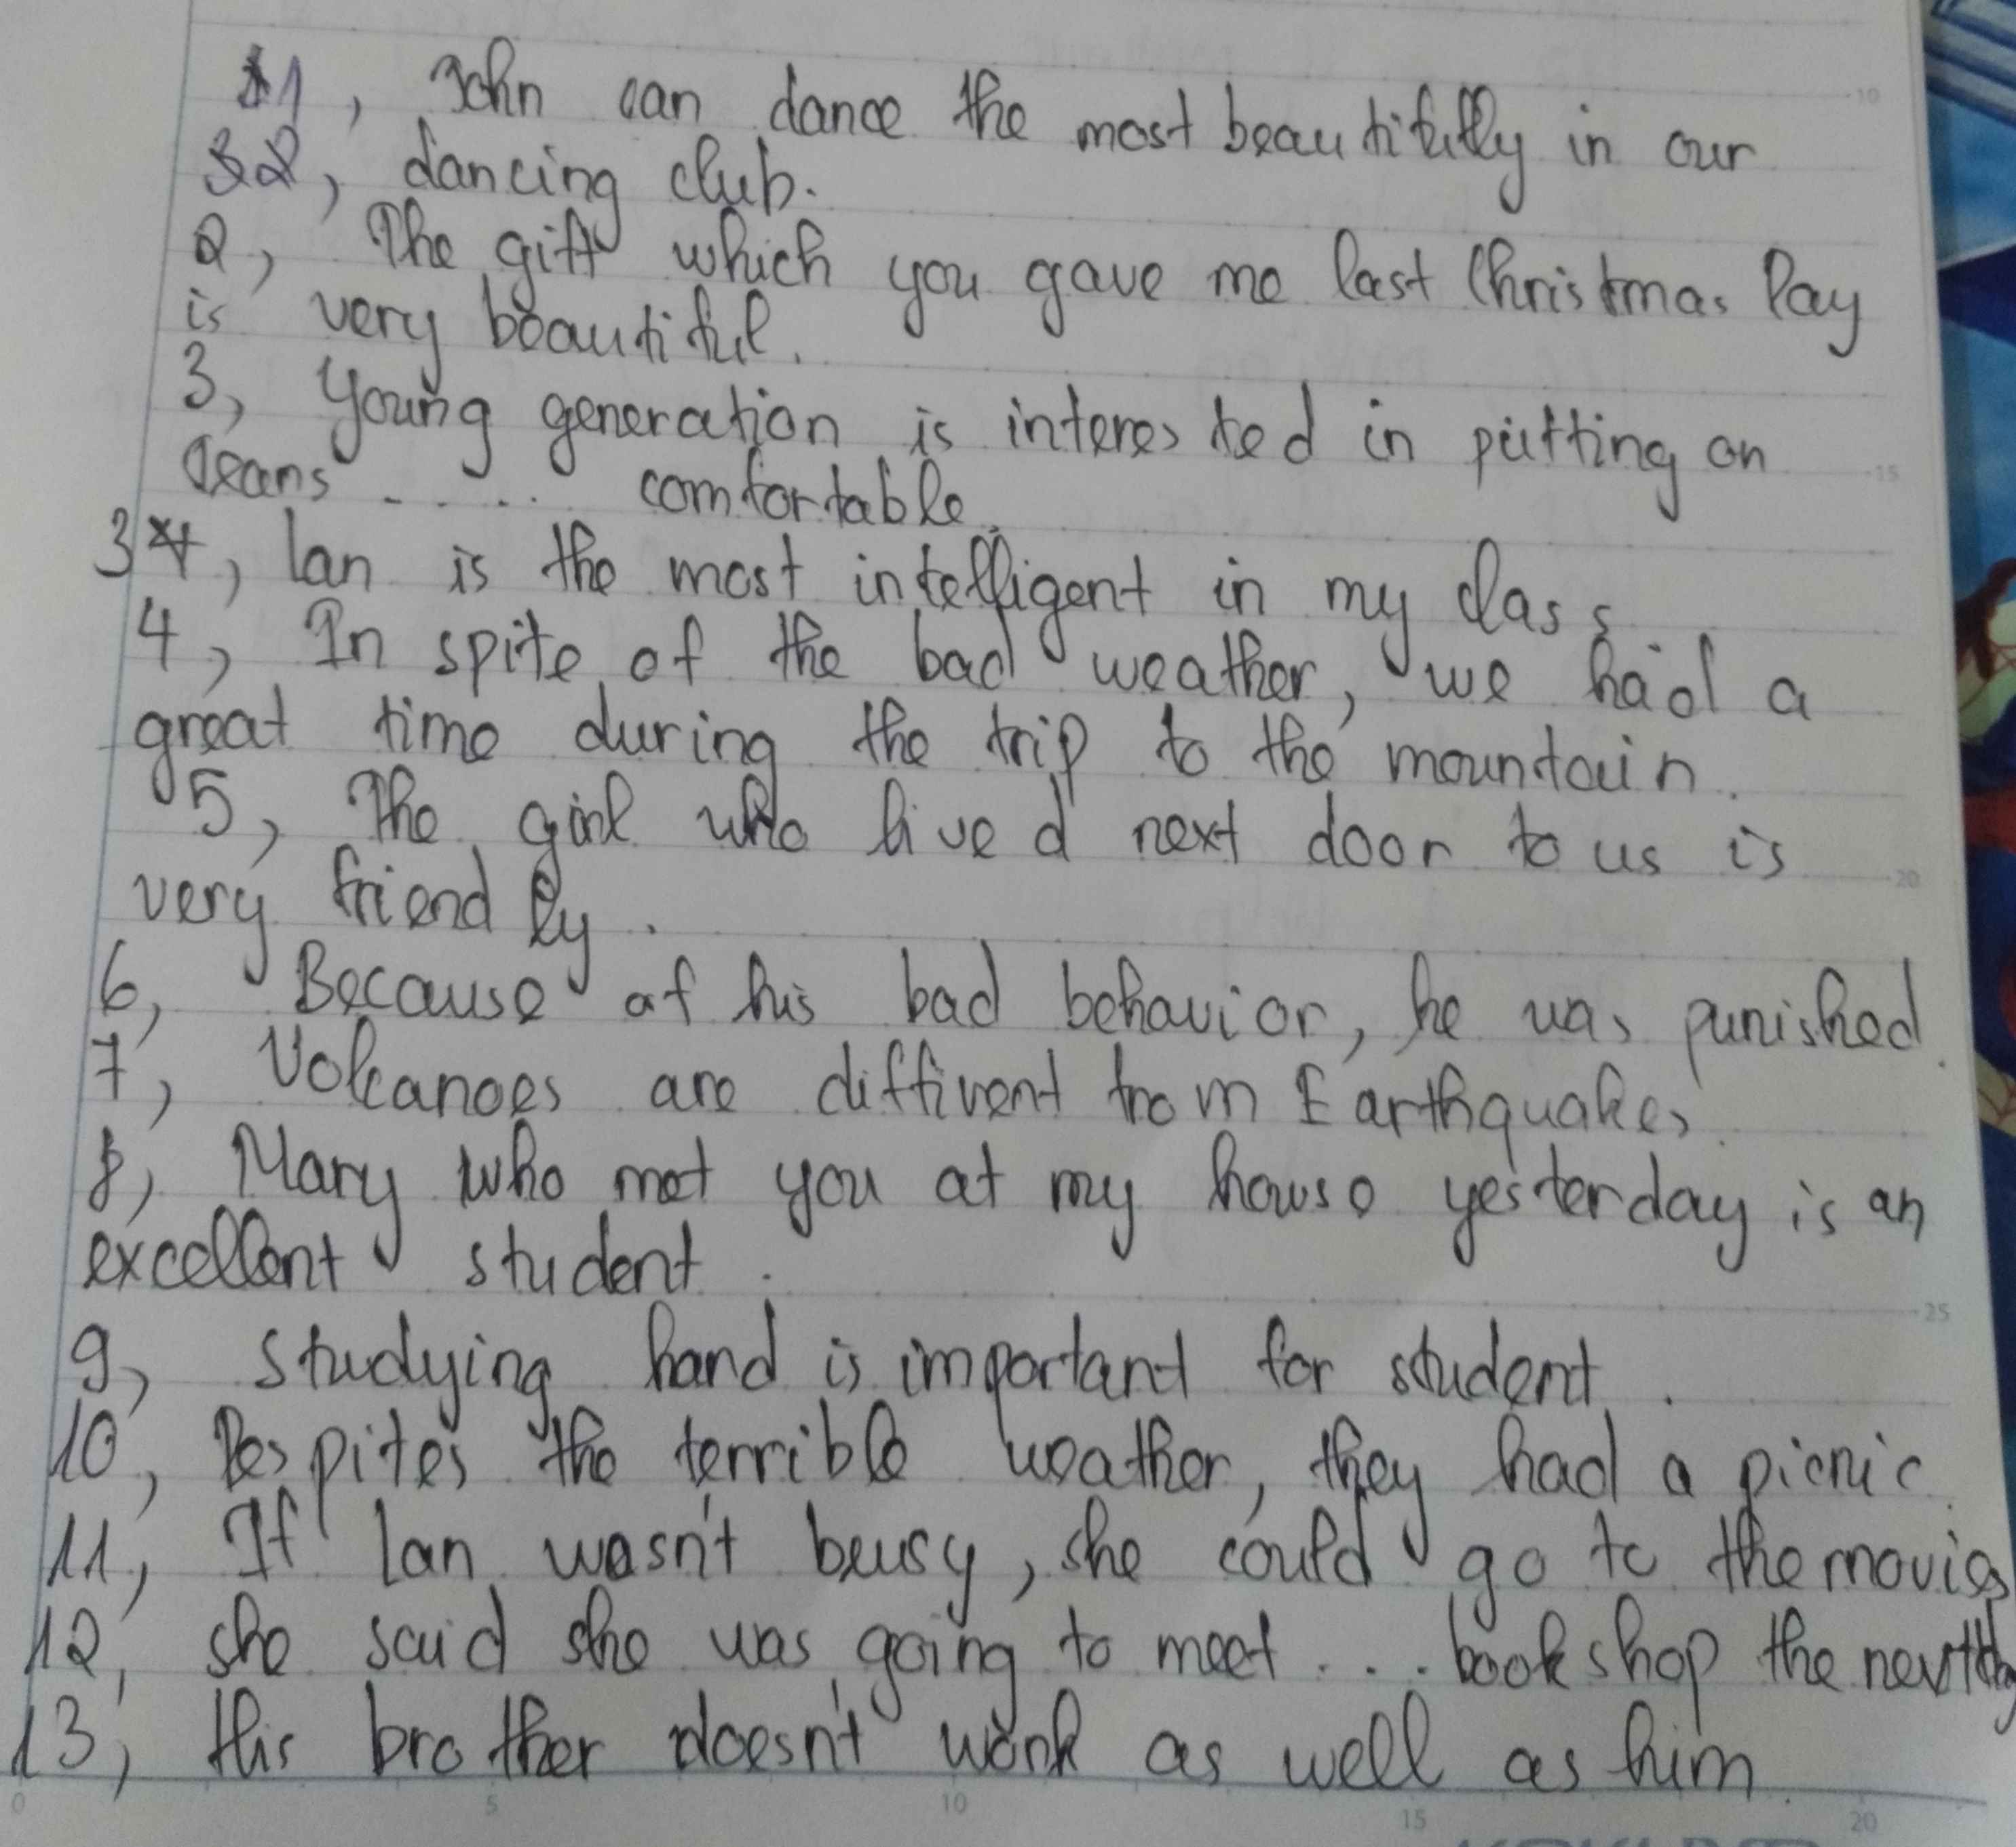 1, John can dance the most beautifully in our
2, dancing club.
2, The gift which you gave me last Christmas Day
is very beautiful.
3, Young generation is interested in putting on
Jeans ...... comfortable.
3, Lan is the most intelligent in my class
4, In spite of the bad weather, we had a
great time during the trip to the mountain.
5, The girl who lived next door to us is
very friendly.
6, Because of his bad behavior, he was punished.
7, Volcanoes are diffirent from Earthquakes.
8, Mary who met you at my house yesterday is an
excellent student.
9, Studying hard is important for student.
10, Despites the terrible weather, they had a picnic.
11, If Lan wasn't beusy, she could go to the movies
12, she said she was going to meet ... bookshop the next
13, His brother doesn't work as well as him.
0 5 10 15 20
10
15
20
25